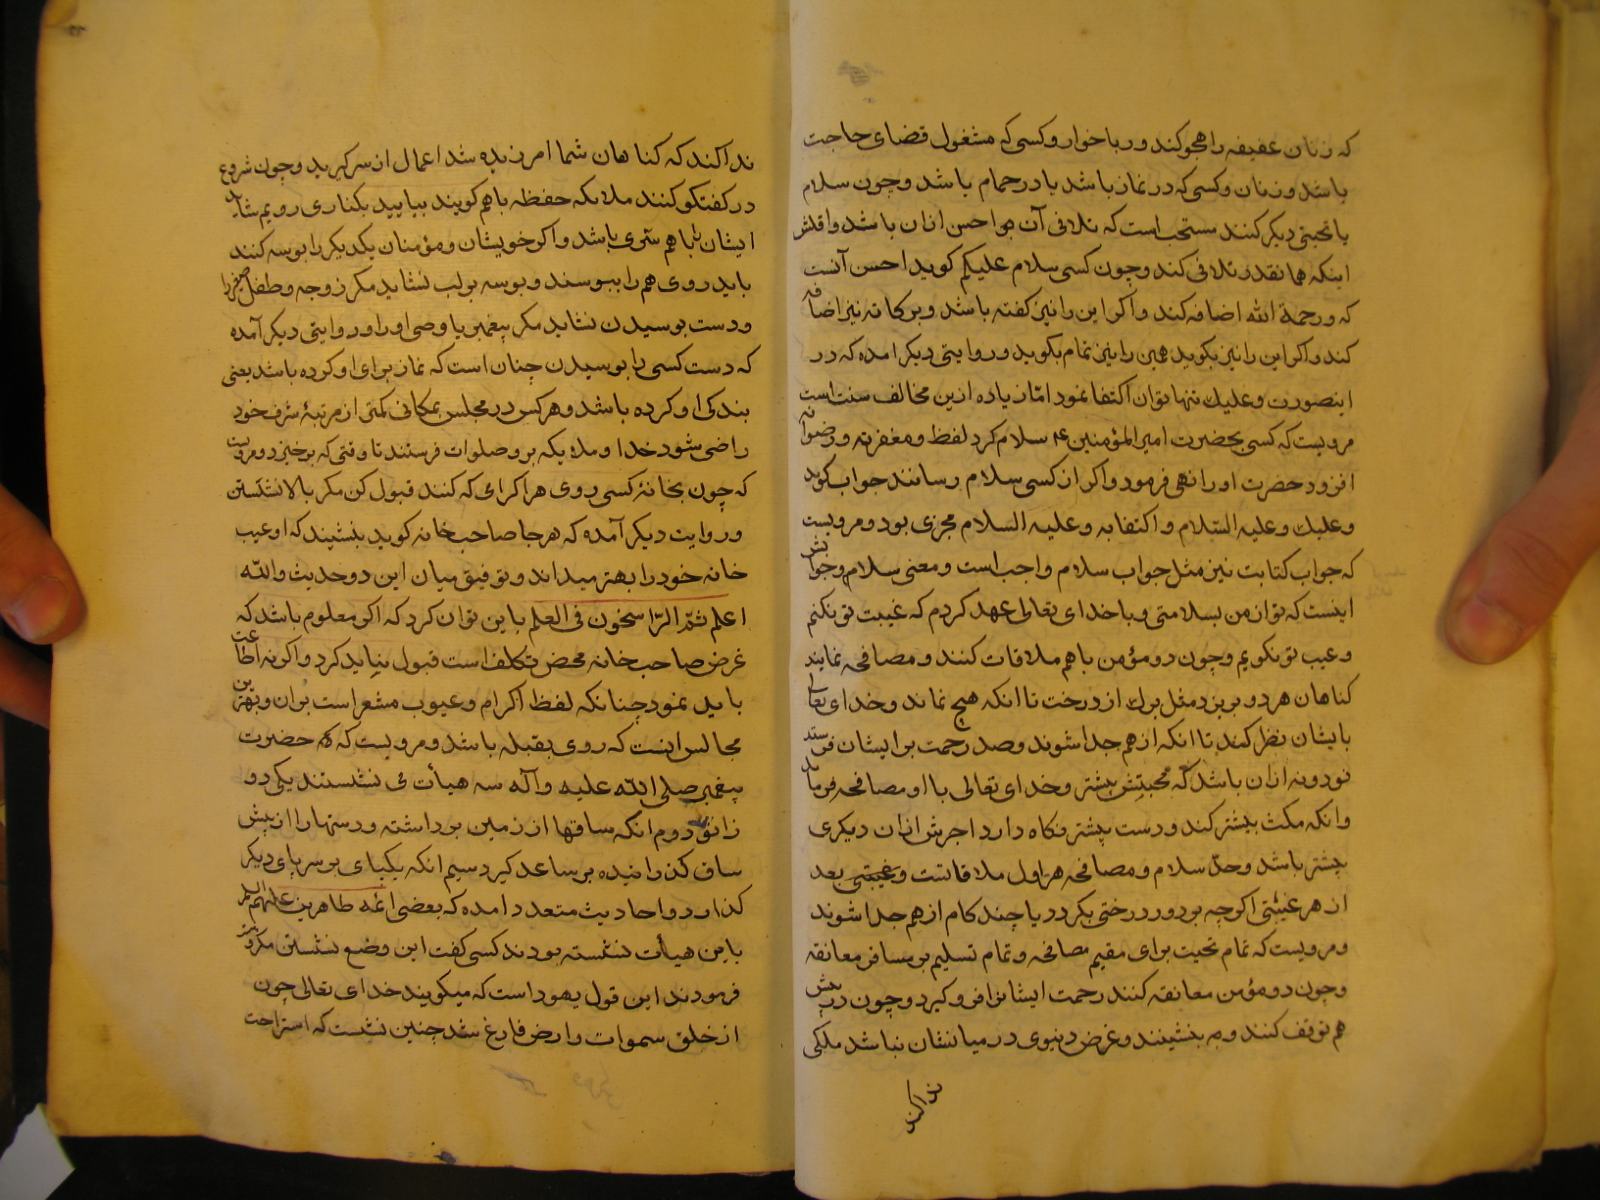 که زنان عفیفه را هجو کند و رباخوار و کسی که مشغول قضای حاجت
باشد و زنان و کسی که در نماز باشد یا در حمام باشد و چون سلام
یا تحیتی دیگر کنند مستحب است که تلافی آن بر احسن ازان باشد و اقلش
اینکه همانقدر تلافی کند و چون کسی سلام علیکم کوید احسن آنست
که و رحمة الله اضافه کند و اکر این را نیز کفته باشد و برکاته نیز اضافه
کند و اکر این را نیز بکوید همین را نیز تمام بکوید و روایتی دیکر امده که در
اینصورت و علیك تنها توان اکتفا نمود امّا زیاده ازین مخالف سنت است
مرویست که کسی بحضرت امیرالمؤمنین ع سلام کرد لفظ و مغفرته و رضوانه
افزود حضرت او را نهی فرمود و اکر از کسی سلام رسانند جواب کوید
و علیك و علیه السّلام و اکتفا به و علیه السلام مجزی بود و مرویست
که جواب کتابت نیز مثل جواب سلام واجب است و معنی سلام و جوابش
اینست که تو از من بسلامتی و با خدای تعالی عهد کردم که غیبت تو نکنم
و عیب تو نکویم و چون دو مؤمن با هم ملاقات کنند و مصافحه نمایند
کناهان هر دو بریزد مثل برك از درخت تا انکه هیچ نماند و خدای تعالی
بایشان نظر کند تا انکه از هم جدا شوند و صد رحمت بر ایشان فرستد
نود و نه ازان باشد که محبتش بیشتر و خدای تعالی با او مصافحه فرماید
و انکه مکث بیشتر کند و دست بیشتر نکاه دارد اجرش ازان دیکری
بیشتر باشد و حدّ سلام و مصافحه هر اول ملاقاتست و غیبتی بعد
از هر غیبتی اکرچه بدور درختی بکردد یا چند کام از هم جدا شوند
و مرویست که تمام تحیت برای مقیم مصافحه و تمام تسلیم بر مسافر معانقه
و چون دو مؤمن معانقه کنند رحمت ایشانرا فرو کیرد و چون در پیش
هم توقف کنند و به بنشینند و غرض دنیوی در میانشان نباشد ملکی
ندا کند
ندا کند که کناهان شما امرزیده شد اعمال از سر کیرید و چون شروع
در کفتکو کنند ملائکه حفظه با هم کویند بیایید بکناری رویم شاید
ایشان را با هم سرّی باشد و اکر خویشان و مؤمنان یکدیکر را بوسه کنند
باید روی هم را ببوسند و بوسه بر لب نشاید مکر زوجه و طفل صغیر را
و دست بوسیدن نشاید مکر پیغمبر یا وصی او را و روایتی دیکر آمده
که دست کسی را بوسیدن چنان است که نماز برای او کرده باشد یعنی
بندکی او کرده باشد و هر کس در مجلس بمکانی کمتر از مرتبهٔ شرف خود
راضی شود خدا و ملایکه برو صلوات فرستند تا وقتی که برخیزد و مرویست
که چون بخانهٔ کسی روی هر اکرامی که کنند قبول کن مکر بالا نشستن
و روایت دیکر آمده که هر جا صاحب خانه کوید بنشیند که او عیب
خانه خود را بهتر میداند و توفیق میان این دو حدیث والله
اعلم ثمّ الرّاسخون فی العلم باین توان کرد که اکر معلوم باشد که
غرض صاحب خانه محض تکلف است قبول نباید کرد و اکر نه اطاعت
باید نمود چنانکه لفظ اکرام و عیوب مشعر است بران و بهترین
مجالس اینست که روی بقبله باشد و مرویست که حضرت
پیغمبر صلی الله علیه وآله سه هیأت می نشستند یکی دو
زانو دوم انکه ساقها از زمین برداشته و دستها را از پیش
ساق کذرانیده بر ساعد کیرد سیم انکه یکپای بر سر پای دیکر
کذارد و احادیث متعدد امده که بعضی ائمه طاهرین علیهم السلام
باین هیأت نشسته بودند کسی کفت این وضع نشستن مکروه
فرمودند این قول یهود است که میکویند خدای تعالی چون
از خلق سموات و ارض فارغ شد چنین نشست که استراحت